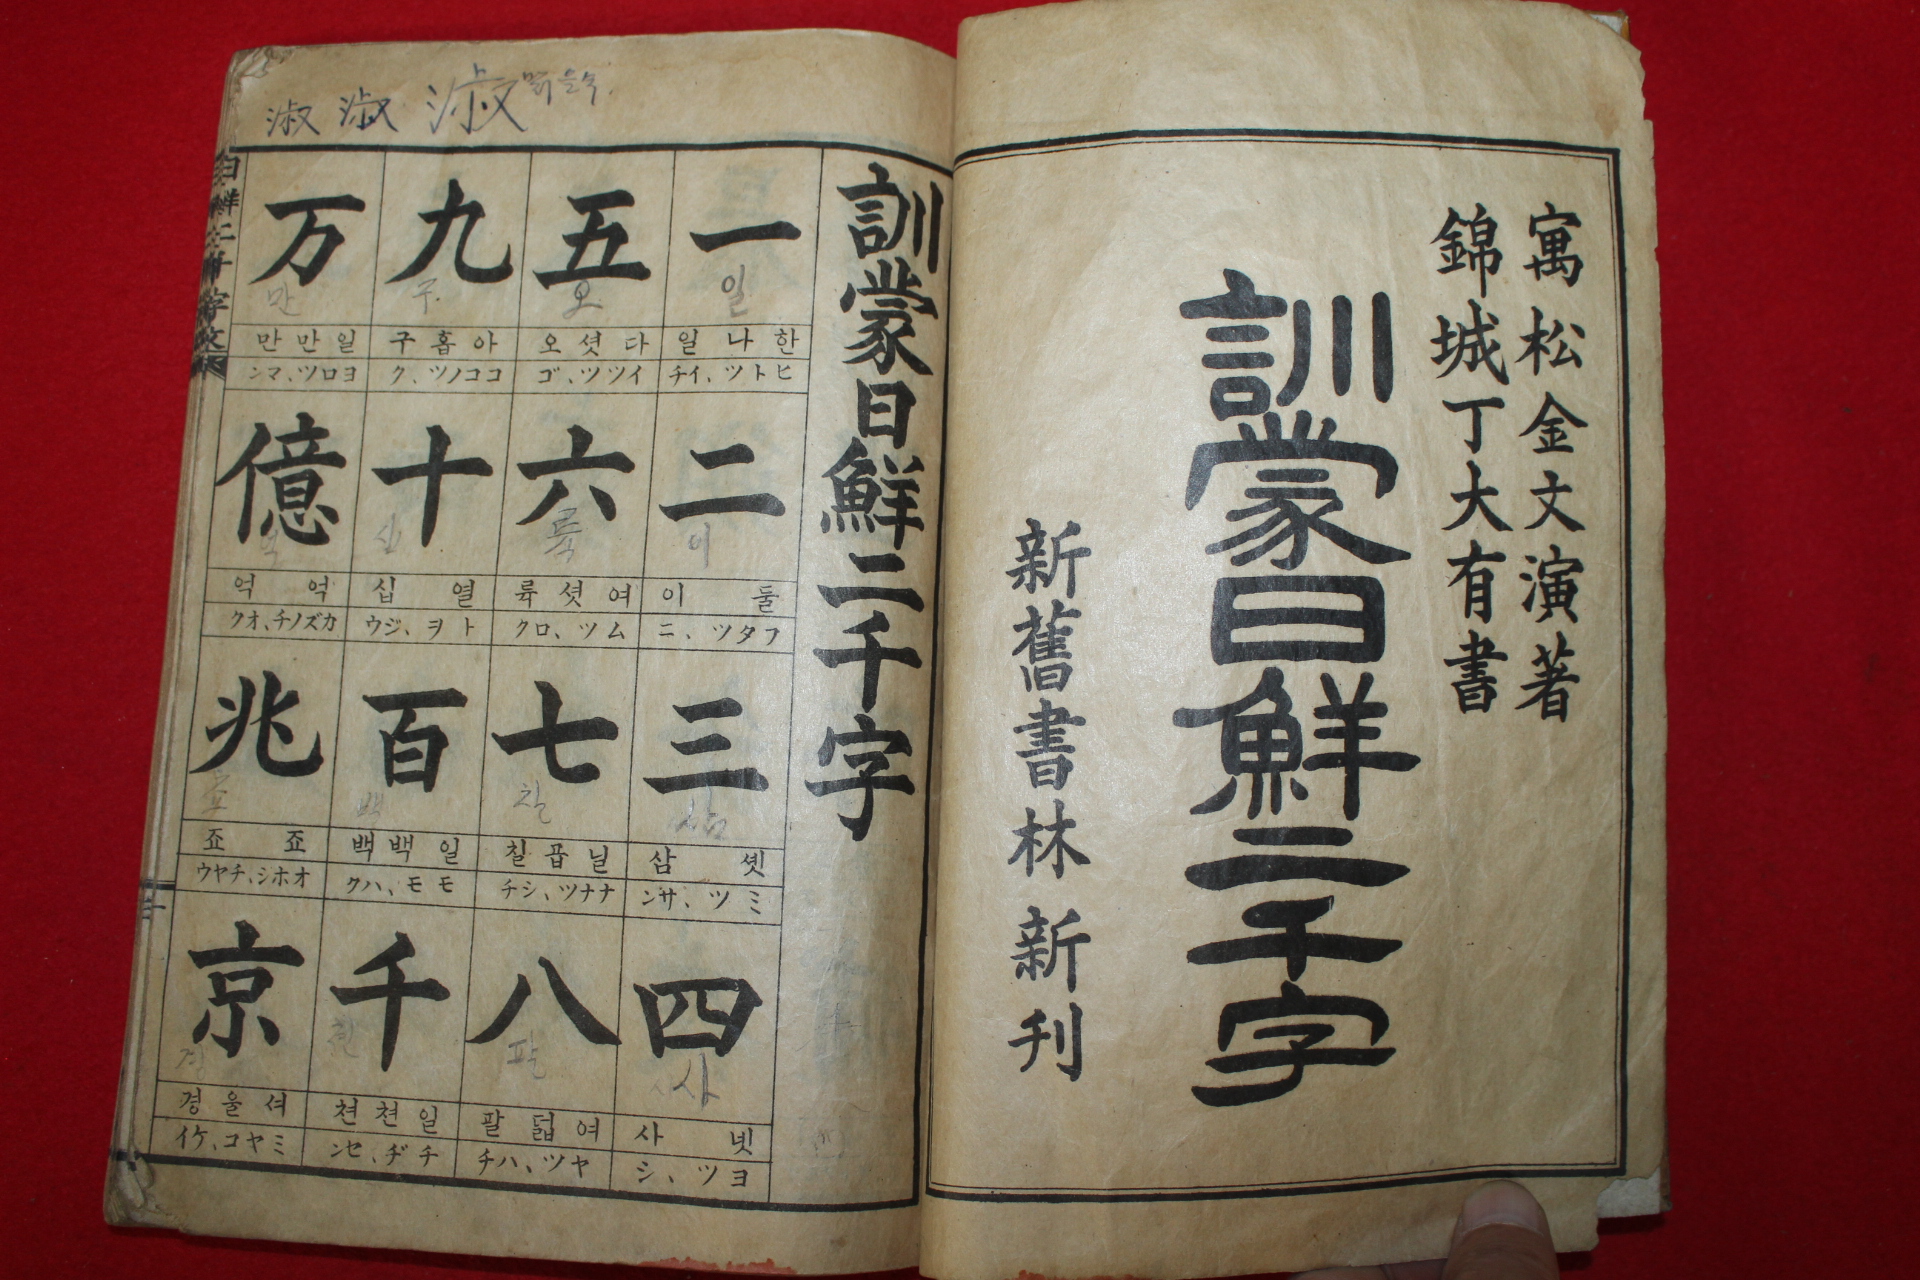 寓松金文演著
錦城丁大有書
訓蒙日鮮二千字
新舊書林 新刊
淑 淑 淑 맑을숙
訓蒙日鮮二千字
一
일
한나일
ヒトツ、イチ
二
이
둘이
フタツ、ニ
三
삼
솃삼
ミツ、サン
四
사
넷사
ヨツ、シ
五
오
다셧오
イツツ、ゴ
六
륙
여셧륙
ムツ、ロク
七
칠
닐곱칠
ナナツ、シチ
八
팔
여덟팔
ヤツ、ハチ
九
구
아홉구
ココノツ、ク
十
십
열십
トヲ、ジウ
百
백
일백백
モモ、ハク
千
일쳔쳔
チヂ、セン
万
만
일만만
ヨロツ、マン
億
억
억억
カズノチ、オク
兆
죠죠
オホシ、チヤウ
京
경
셔울경
ミヤコ、ケイ
日鮮二千字